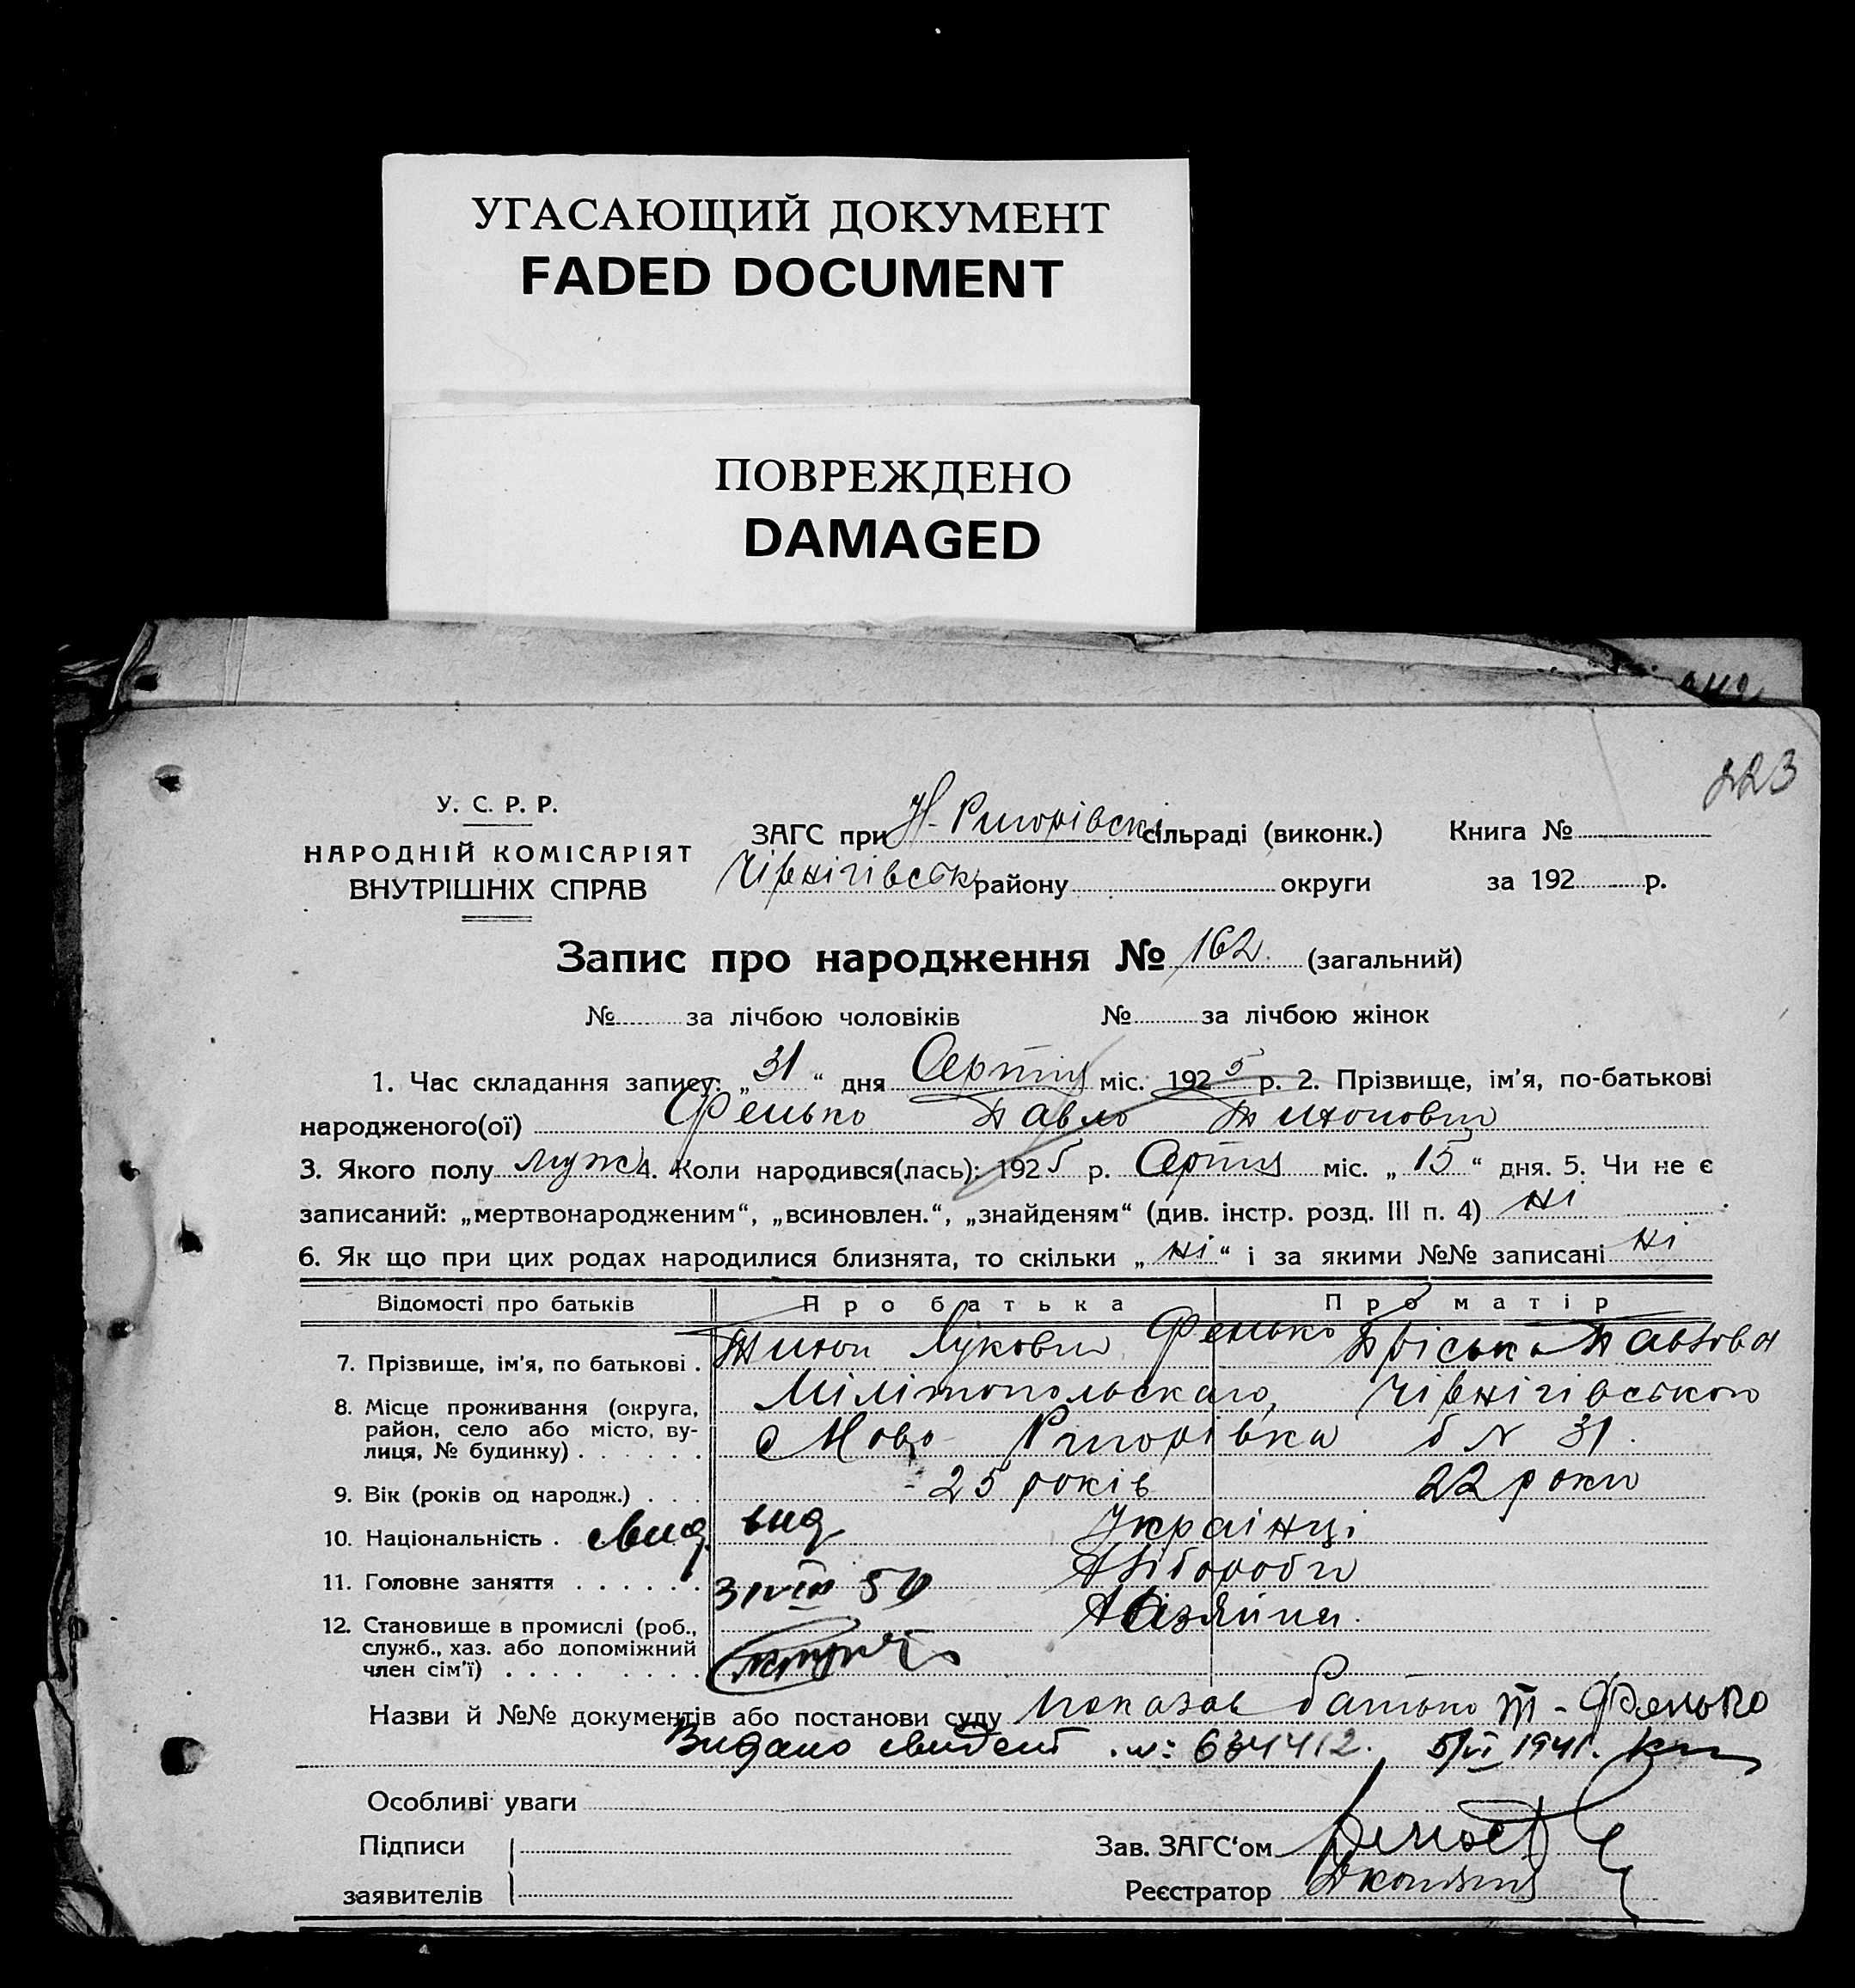 УГАСАЮЩИЙ ДОКУМЕНТ
FADED DOCUMENT
ПОВРЕЖДЕНО
DAMAGED
223
У. С. Р. Р.
НАРОДНІЙ КОМІСАРІЯТ
ВНУТРІШНІХ СПРАВ
ЗАГС при Н-Ригорівскі сільраді (виконк.) Книга №
Чірнігівськ району округи за 192 р.
Запис про народження № 162. (загальний)
№ за лічбою чоловіків № за лічбою жінок
1. Час складання запису: „31“ дня Серпня міс. 1925 р. 2. Прізвище, ім'я, по-батькові
народженого(ої) Фенько Павло Тихонович
3. Якого полу муж 4. Коли народився(лась): 1925 р. Серпня міс. „15“ дня. 5. Чи не є
записаний: „мертвонародженим“, „всиновлен.“, „знайденям“ (див. інстр. розд. III п. 4) Ні
6. Як що при цих родах народилися близнята, то скільки „Ні“ і за якими №№ записані Ні
Відомості про батьків Про батька Про матір
7. Прізвище, ім'я, по батькові . Тихон Лукович Фенько Пріська Павлова
8. Місце проживання (округа, Мілітопольскаго, Чірнігівського
район, село або місто, ву- с Ново Ригорівка б N 31.
лиця, № будинку)
9. Вік (років од народж.) 25 років 22 роки
10. Національність . свид. вид Українці
11. Головне заняття 31 VIII 50 Хліборобы
12. Становище в промислі (роб., Хазяйни.
служб., хаз. або допоміжний
член сім'ї)
Назви й №№ документів або постанови суду показав батько Т-Фенько
Видано свидет. №: 634412. 5/VI 1941.
Особливі уваги
Підписи Зав. ЗАГС‘ом
заявителів Реєстратор